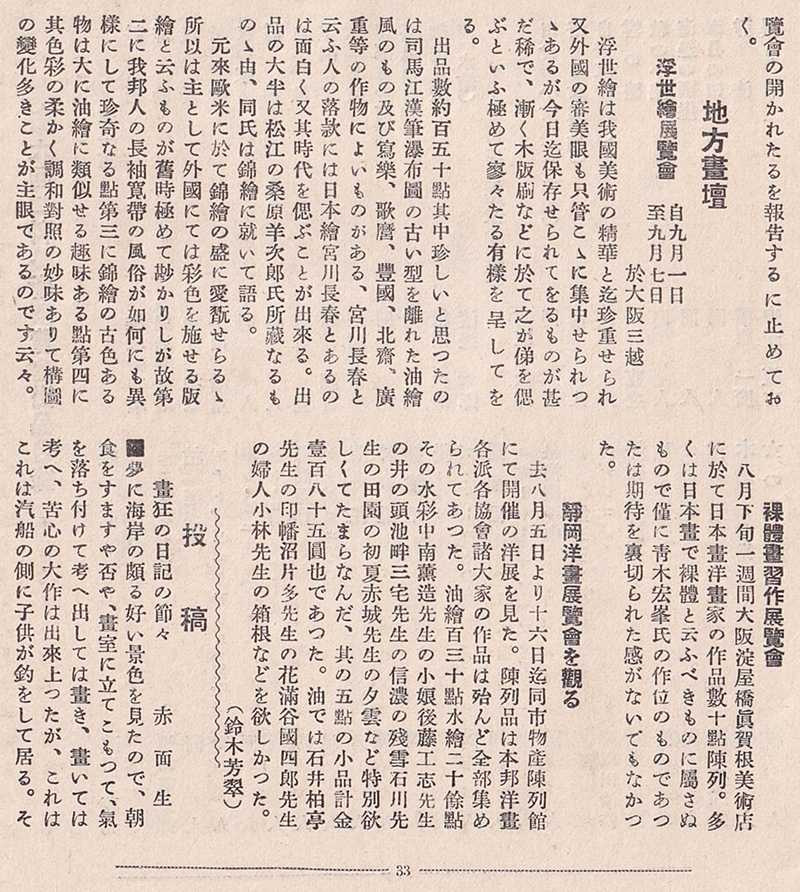 覽會の開かれたるを報告するに止めてお
く。
地方畫壇
浮世繪展覽會
自九月一日
至九月七日
於大阪三越
浮世繪は我國美術の精華と迄珍重せられ
又外國の審美眼も只管こゝに集中せられつ
ゝあるが今日迄保存せられてをるものが甚
だ稀で、漸く木版刷などに於て之が俤を偲
ぶといふ極めて寥々たる有樣を呈してを
る。
出品數約百五十點其中珍しいと思つたの
は司馬江漢筆瀑布圖の古い型を離れた油繪
風のもの及び寫樂、歌麿、豐國、北齋、廣
重等の作物によいものがある、宮川長春と
云ふ人の落款には日本繪宮川長春とあるの
は面白く又其時代を偲ぶことが出來る。出
品の大半は松江の桑原羊次郎氏所藏なるも
のゝ由、同氏は錦繪に就いて語る。
元來歐米に於て錦繪の盛に愛翫せらるゝ
所以は主として外國にては彩色を施せる版
繪と云ふものが舊時極めて尠かりしが故第
二に我邦人の長袖寬帶の風俗が如何にも異
樣にして珍奇なる點第三に錦繪の古色ある
物は大に油繪に類似せる趣味ある點第四に
其色彩の柔かく調和對照の妙味ありて構圖
の變化多きことが主眼であるのです云々。
裸體畫習作展覽會
八月下旬一週間大阪淀屋橋眞賀根美術店
に於て日本畫洋畫家の作品數十點陳列。多
くは日本畫で裸體と云ふべきものに屬さぬ
もので僅に靑木宏峯氏の作位のものであつ
たは期待を裏切られた感がないでもなかつ
た。
靜岡洋畫展覽會を觀る
去八月五日より十六日迄同市物產陳列館
にて開催の洋展を見た。陳列品は本邦洋畫
各派各協會諸大家の作品は殆んど全部集め
られてあつた。油繪百三十點水繪二十餘點
その水彩中南薰造先生の小娘後藤工志先生
の井の頭池畔三宅先生の信濃の殘雪石川先
生の田園の初夏赤城先生の夕雲など特別欲
しくてたまらなんだ、其の五點の小品計金
壹百八十五圓也であつた。油では石井柏亭
先生の印幡沼片多先生の花滿谷國四郎先生
の婦人小林先生の箱根などを欲しかつた。
（鈴木芳翠）
投稿
畫狂の日記の節々　赤面生
夢に海岸の頗る好い景色を見たので、朝
食をすますや否や、畫室に立てこもつて、氣
を落ち付けて考へ出しては畫き、畫いては
考へ、苦心の大作は出來上つたが、これは
これは汽船の側に子供が釣をして居る。そ
33